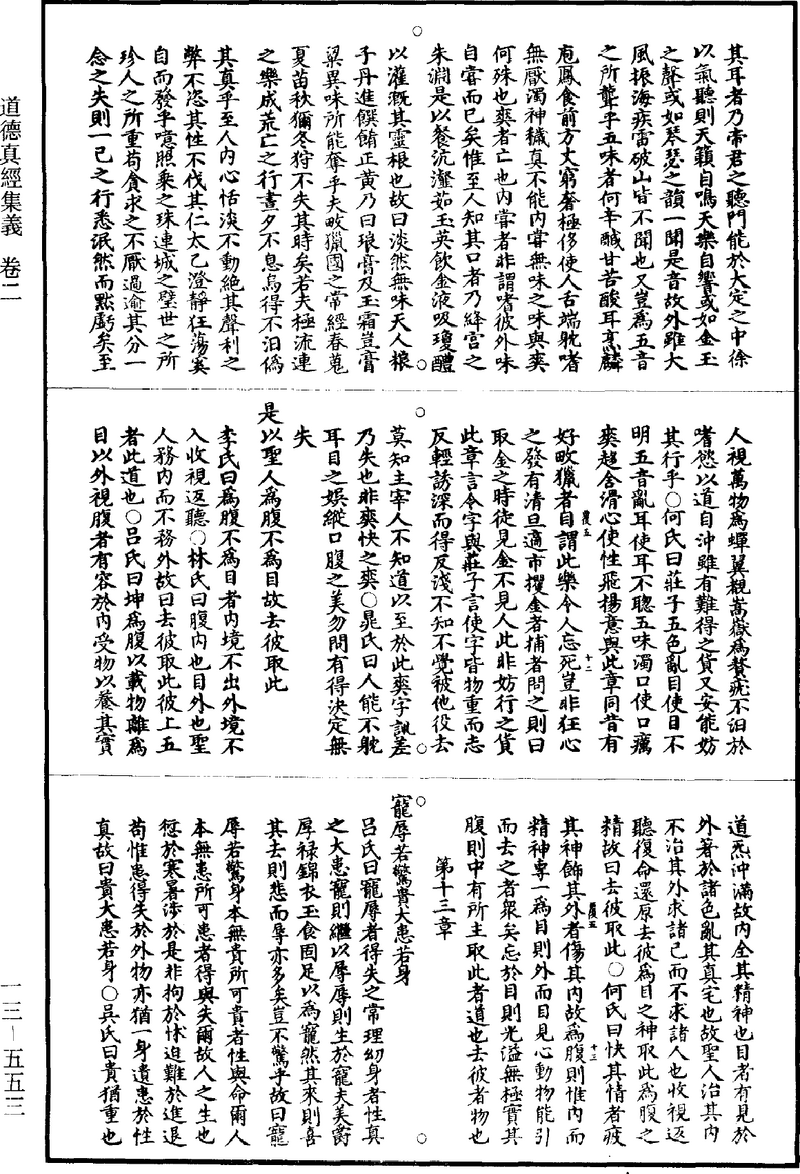 道德真經集義　卷二
其耳者乃帝君之聽門能於大定之中徐
以氣聽則天籟自鳴天樂自響或如金玉
之聲或如琴瑟之韻一聞是音故外雖大
風振海疾雷破山皆不聞也又豈為五音
之所聾乎五味者何辛鹹甘苦酸耳烹麟
庖鳳食前方丈窮奢極侈使人舌端躭嗜
無厭濁神穢真不能內嘗無味之味與爽
何殊也爽者亡也內嘗者非謂嗜彼外味
自嘗而已矣惟至人知其口者乃絳宮之
朱淵是以餐沆瀣茹玉英飲金液吸瓊醴
以灌溉其靈根也故曰淡然無味天人粮
子丹進饌餚正黃乃曰琅膏及玉霜豈膏
粱異味所能奪乎夫畋獵國之常經春蒐
夏苗秋獮冬狩不失其時矣若夫極流連
之樂成荒亡之行晝夕不息烏得不汩僞
其真乎至人內心恬淡不動絕其聲利之
弊不恣其性不伐其仁太乙澄靜狂蕩奚
自而發乎噫照乘之珠連城之璧世之所
珍人之所重苟貪求之不厭過逾其分一
念之失則一己之行悉泯然而黙虧矣至
人視萬物為蟬翼觀嵩嶽為贅疣不汩於
嗜慾以道自沖雖有難得之貨又安能妨
其行乎○何氏曰莊子五色亂目使目不
明五音亂耳使耳不聰五味濁口使口厲
爽趣舍滑心使性飛揚意與此章同昔有
好畋獵者自謂此樂令人忘死豈非狂心
之發有清旦適市攫金者捕者問之則曰
取金之時徒見金不見人此非妨行之貨
此章言令字與莊子言使字皆物重而志
反輕誘深而得反淺不知不覺被他役去
莫知主宰人不知道以至於此爽字訓差
乃失也非爽快之爽○晁氏曰人能不躭
耳目之娛縱口腹之美勿問有得決定無
失
是以聖人為腹不為目故去彼取此
李氏曰為腹不為目者內境不出外境不
入收視返聽○林氏曰腹內也目外也聖
人務內而不務外故曰去彼取此彼上五
者此道也○呂氏曰坤為腹以載物離為
目以外視腹者有容於內受物以養其實
道炁沖滿故內全其精神也目者有見於
外著於諸色亂其真宅也故聖人治其內
不治其外求諸己而不求諸人也收視返
聽復命還原去彼為目之神取此為腹之
精故曰去彼取此○何氏曰快其情者疲
其神飾其外者傷其內故為腹則惟內而
精神專一為目則外而目見心動物能引
而去之者眾矣忘於目則光溢無極實其
腹則中有所主取此者道也去彼者物也
第十三章
寵辱若驚貴大患若身
呂氏曰寵辱者得失之常理幻身者性真
之大患寵則繼以辱辱則生於寵夫美爵
厚祿錦衣玉食固足以為寵然其來則喜
其去則悲而辱亦多矣豈不驚乎故曰寵
辱若驚身本無貴所可貴者性與命爾人
本無患所可患者得與失爾故人之生也
愆於寒暑涉於是非拘於怵迫難於進退
苟惟患得失於外物亦猶一身遺患於性
真故曰貴大患若身○吳氏曰貴猶重也
一三—五五三